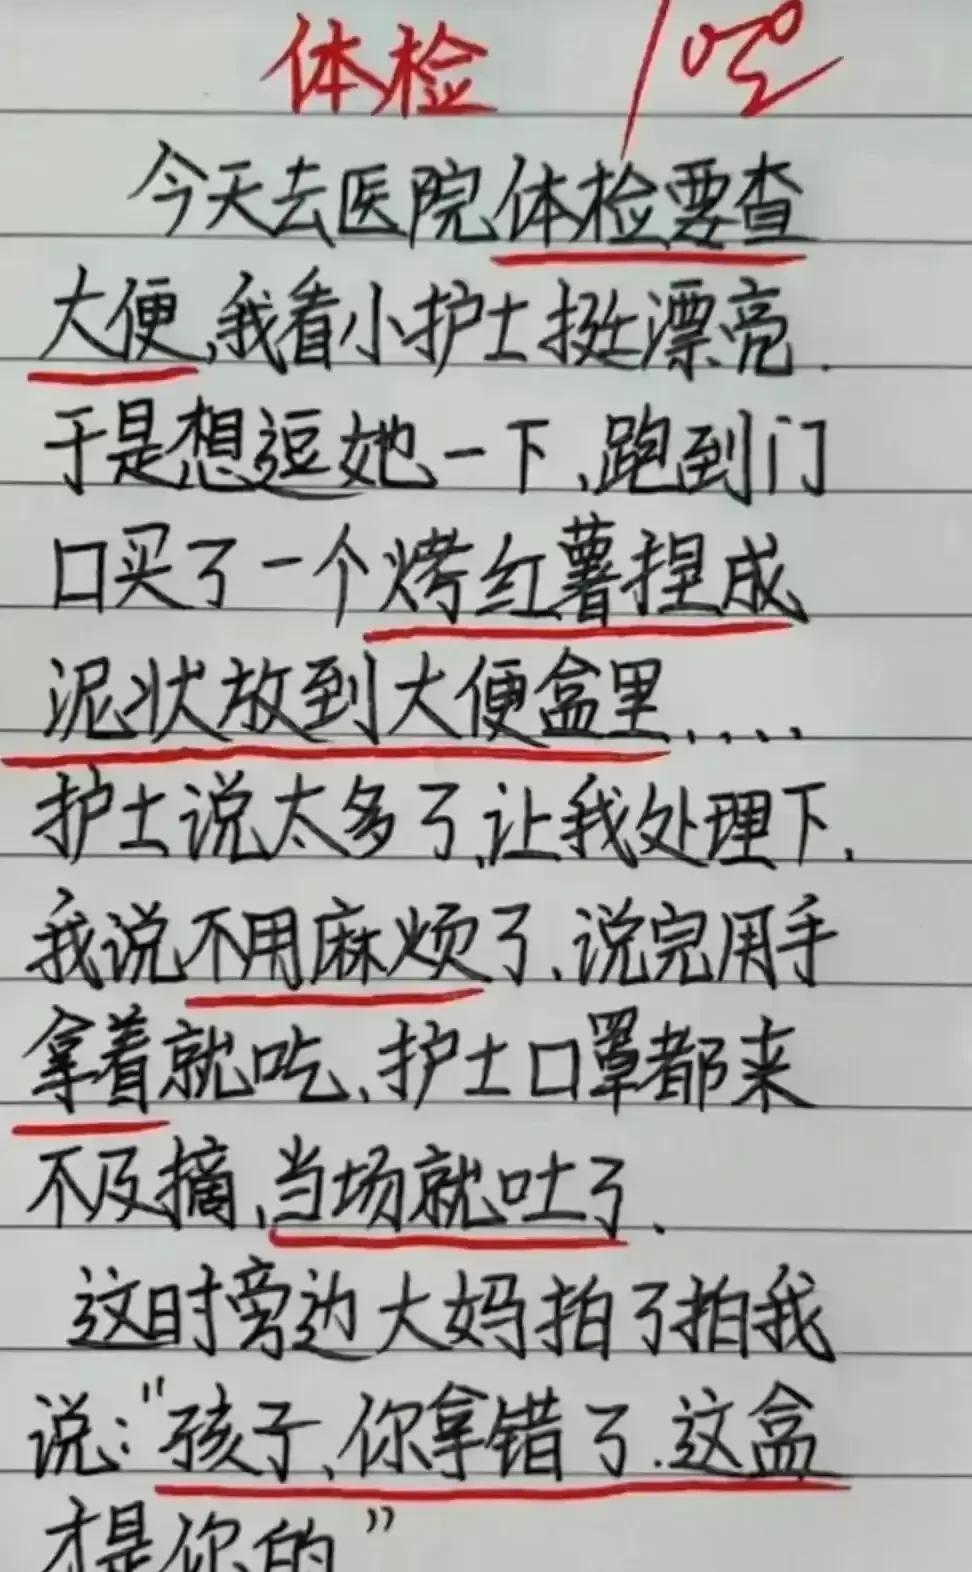 体检
今天去医院体检要查
大便,我看小护士挺漂亮.
于是想逗她一下,跑到门
口买了一个烤红薯捏成
泥状放到大便盒里....
护士说太多了,让我处理下,
我说不用麻烦了,说完用手
拿着就吃,护士口罩都来
不及摘,当场就吐了.
这时旁边大妈拍了拍我
说:"孩子,你拿错了.这盒
才是你的"